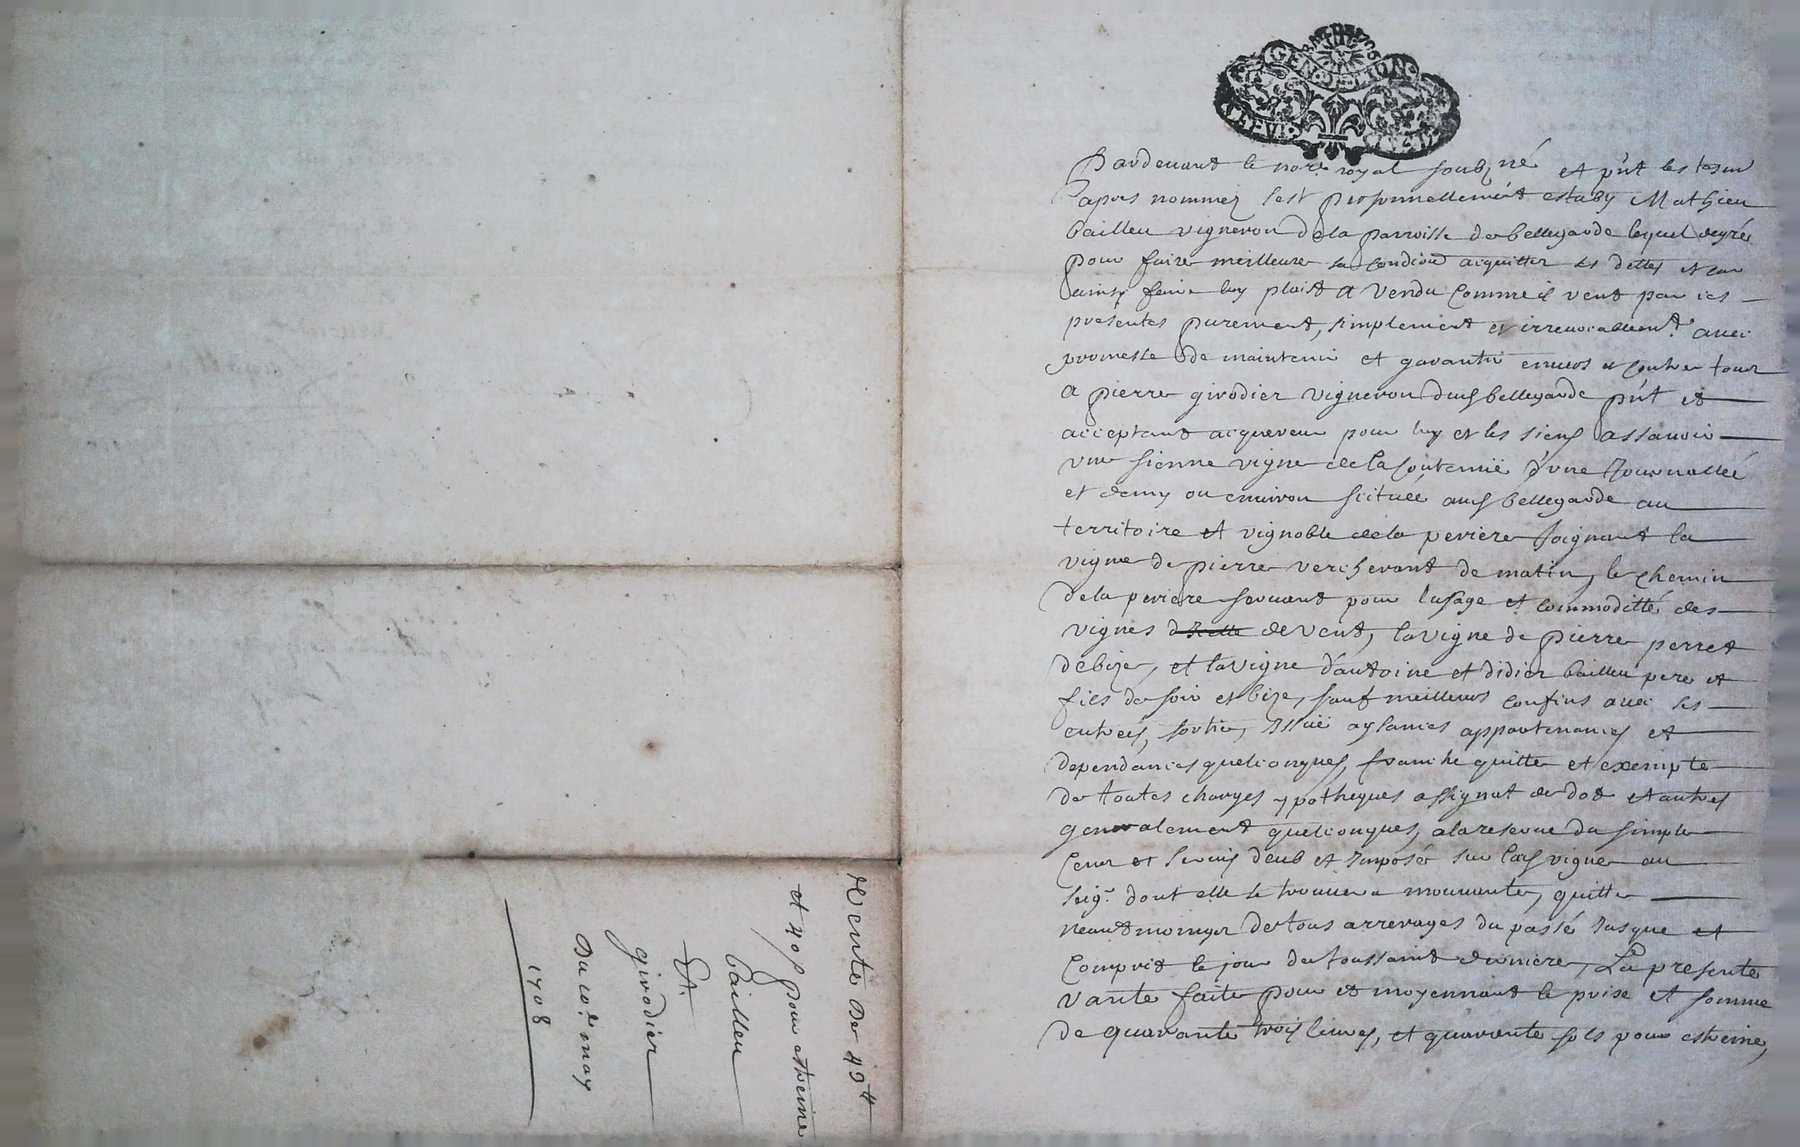 GEN. D. LION
Pardevant le nore. royal soubzné et pnt les tesm
apres nommez s'est personnellement estably Mathieu
bailleu vigneron dela parroisse de bellegarde lequel degrés
pour faire meilleure sa condiōn acquitter ses dettes et car
ainsy faire luy plaist a vendu comme il vent par ces
presentes purement, simplement et irrevocablemt. avec
promesse de maintenir et garantir envers et contre tous
a pierre girodier vigneron dud bellegarde pnt et
acceptant acquereur pour luy et les siens assavoir
une sienne vigne de la contenüe d'une Journallée
et demy ou environ scituée aud bellegarde au
territoire et vignoble dela periere Joignant la
vigne de pierre vercherant de matin, le chemin
dela periere servant pour lusage et commoditté des
vignes de vent, la vigne de pierre perret
de bize, et la vigne d'antoine et didier bailleu pere et
fils de soir et bize, sauf meilleurs confins avec ses
entrées, sortie, Issüe aysances appartenances et
dependances quelconques, franche quitte et exempte
de toutes charges ypotheques assignat de dot et autres
generalement quelconques, a la reserve du simple
cens et servis deub et Imposés sur lad vigne au
seigr. dont elle se trouvera mouvante, quitte
neantmoings de tous arrerages du passé Jusque et
compris le jour de toussaint derniere, La presente
vante faite pour et moyennant le prix et somme
de quarante trois livres, et quarante sols pour estreine,
Vente de 43tt
et 40 s pour estreine
bailleu
Et.
girodier
Du 10e. may
1708